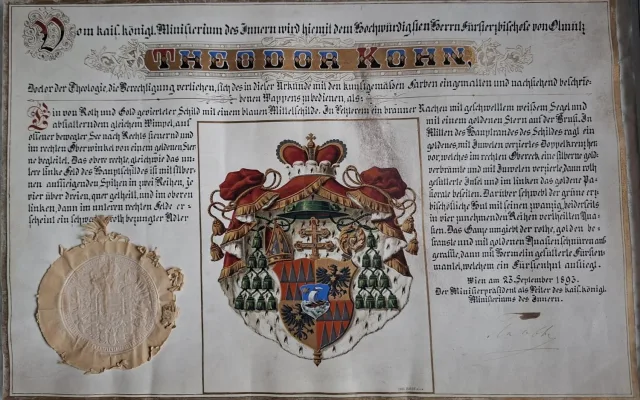 Vom kais. königl. Ministerium des Innern wird hiemit dem Hochwürdigsten Herrn Fürsterzbischofe von Olmütz
THEODOR KOHN,
Doctor der Theologie, die Berechtigung verliehen, sich des in dieser Urkunde mit den kunstgemäßen Farben eingemalten und nachstehend beschrie-
benen Wappens zu bedienen, als:
Ein von Roth und Gold gevierteter Schild mit einem blauen Mittelschilde. In Letzterem ein brauner Nachen mit geschwelltem weißem Segel und
abflatterndem gleichem Wimpel, auf
offener bewegter See nach Rechts steuernd und
im rechten Oberwinkel von einem goldenen Ster-
ne begleitet. Das obere rechte, gleichwie das un-
tere linke Feld des Hauptschildes ist mit silber-
nen aufsteigenden Spitzen in zwei Reihen, je
vier über dreien, quer getheilt, und im oberen
linken, dann im unteren rechten Felde er-
scheint ein schwarzer roth bezungter Adler
mit einem goldenen Stern auf der Brust. In
Mitten des Hauptrandes des Schildes ragt ein
goldenes, mit Juwelen verziertes Doppelkreuz her-
vor, welches im rechten Obereck eine silberne gold-
verbrämte und mit Juwelen verzierte, dann roth
gefütterte Inful und im linken das goldene Pa-
storale beseiten. Darüber schwebt der grüne erz-
bischöfliche Hut mit seinen zwanzig, beiderseits
in vier zunehmenden Reihen vertheilten Qua-
sten. Das Ganze umgiebt der rothe, golden be-
franste und mit goldenen Quastenschnüren auf-
geraffte, dann mit Hermelin gefütterte Fürsten-
mantel, welchem ein Fürstenhut aufliegt.
Wien am 23. September 1893.
Der Ministerpräsident als Leiter des kais. königl.
Ministeriums des Innern.